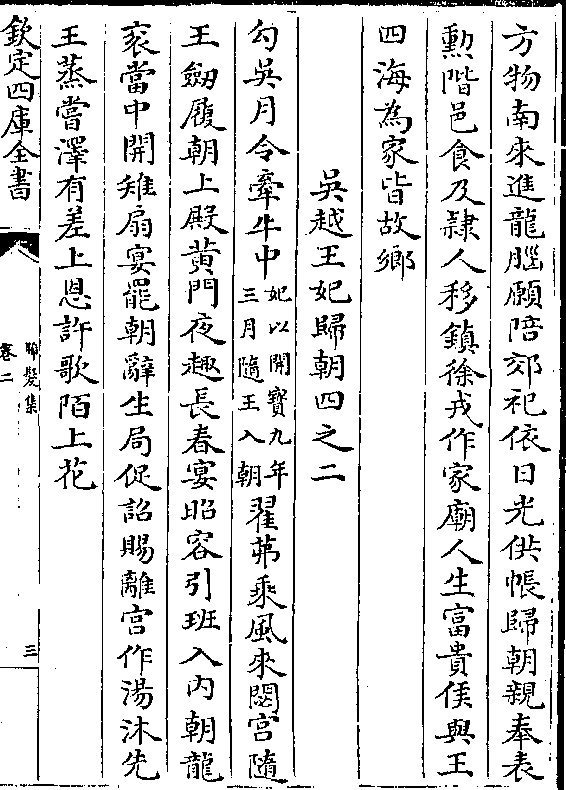 方物南來進龍腦願陪郊祀依日光供帳歸朝親奉表
勲階邑食及隸人移鎮徐戎作家廟人生富貴侯與王
四海為家皆故鄉
吳越王妃歸朝四之二
勾吳月令牽牛中妃以開寶九年三月隨王入朝翟茀乘風來閟宮隨
王劒履朝上殿黄門夜趣長春宴昭容引班入内朝龍
衮當中開雉扇宴罷朝辭生局促詔賜離宮作湯沐先
王蒸嘗澤有差上恩許歌陌上花
欽定四庫全書
晞髮集
卷二
三